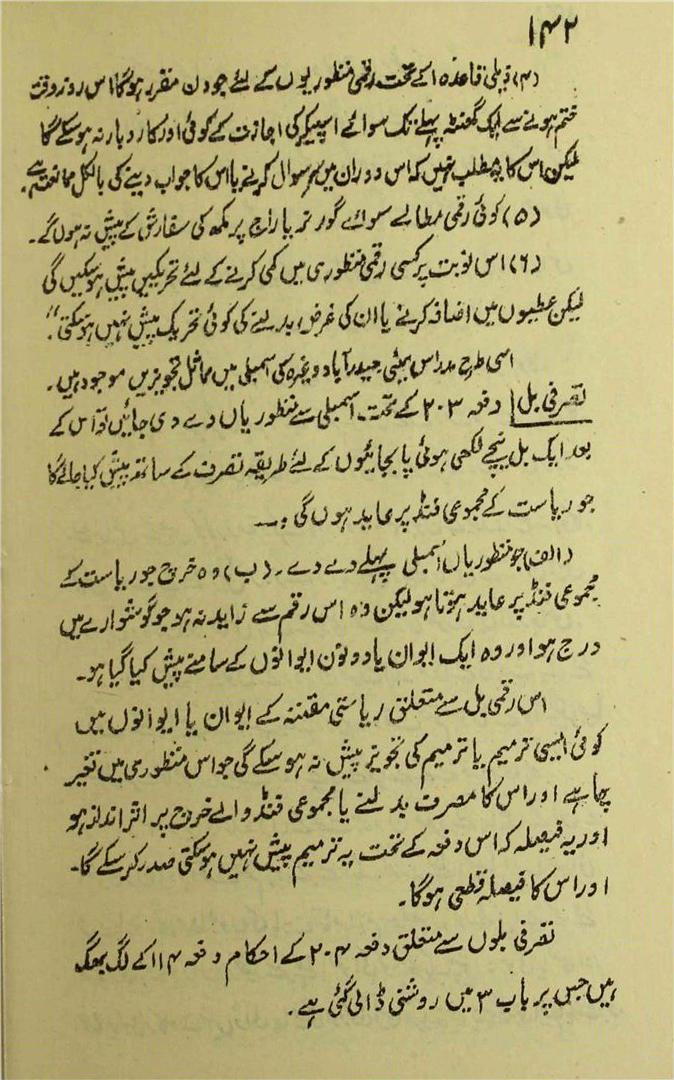 ۱۴۲
(۴) ذیلی قاعدہ ۱ کے تحت رقمی منظوریوں کے لئے جو دن مقرر ہوگا اس روز وقت
ختم ہونے سے ایک گھنٹہ پہلے تک سوائے اسپیکر کی اجازت کے کوئی اور کاروبار نہ ہوسکے گا
لیکن اس کا یہ مطلب نہیں کہ اس دوران میں سوال کرنے یا اس کا جواب دینے کی بالکل ممانعت ہے۔
(۵) کوئی رقمی مطالبے سوائے گورنر یا راج پرمکھ کی سفارش کے پیش نہ ہوں گے۔
(۶) اس نوبت پر کسی رقمی منظوری میں کمی کرنے کے لئے تحریکیں پیش ہوسکیں گی
لیکن عطیوں میں اضافہ کرنے یا ان کی غرض بدلنے کی کوئی تحریک پیش نہیں ہوسکتی"۔
اسی طرح مدراس بمبئی حیدرآباد وغیرہ کی اسمبلی میں مماثل تجویزیں موجود ہیں۔
تصرفی بل | دفعہ ۲۰۳ کے تحت اسمبلی سے منظوریاں دے دی جائیں تو اس کے
بعد ایک بل نیچے لکھی ہوئی پابجائیوں کے لئے طریقہ تصرف کے ساتھ پیش کیا جائے گا
جو ریاست کے مجموعی فنڈ پر عاید ہوں گی :۔
(الف) جو منظوریاں اسمبلی پہلے دے دے۔ (ب) وہ خرچ جو ریاست کے
مجموعی فنڈ پر عاید ہوتا ہو لیکن وہ اس رقم سے زاید نہ ہو جو گوشوارے میں
درج ہو اور وہ ایک ایوان یا دونوں ایوانوں کے سامنے پیش کیا گیا ہو۔
اس رقمی بل سے متعلق ریاستی مقننہ کے ایوان یا ایوانوں میں
کوئی ایسی ترمیم یا ترمیم کی تجویز پیش نہ ہوسکے گی جو اس منظوری میں تغیر
چاہے اور اس کا مصرف بدلنے یا مجموعی فنڈ والے خرچ پر اثر انداز ہو
اور یہ فیصلہ کہ اس دفعہ کے تحت یہ ترمیم پیش نہیں ہوسکتی صدر کرسکے گا۔
اور اس کا فیصلہ قطعی ہوگا۔
تصرفی بلوں سے متعلق دفعہ ۲۰۴ کے احکام دفعہ ۱۱۴ کے لگ بھگ
ہیں جس پر باب ۳ میں روشنی ڈالی گئی ہے۔